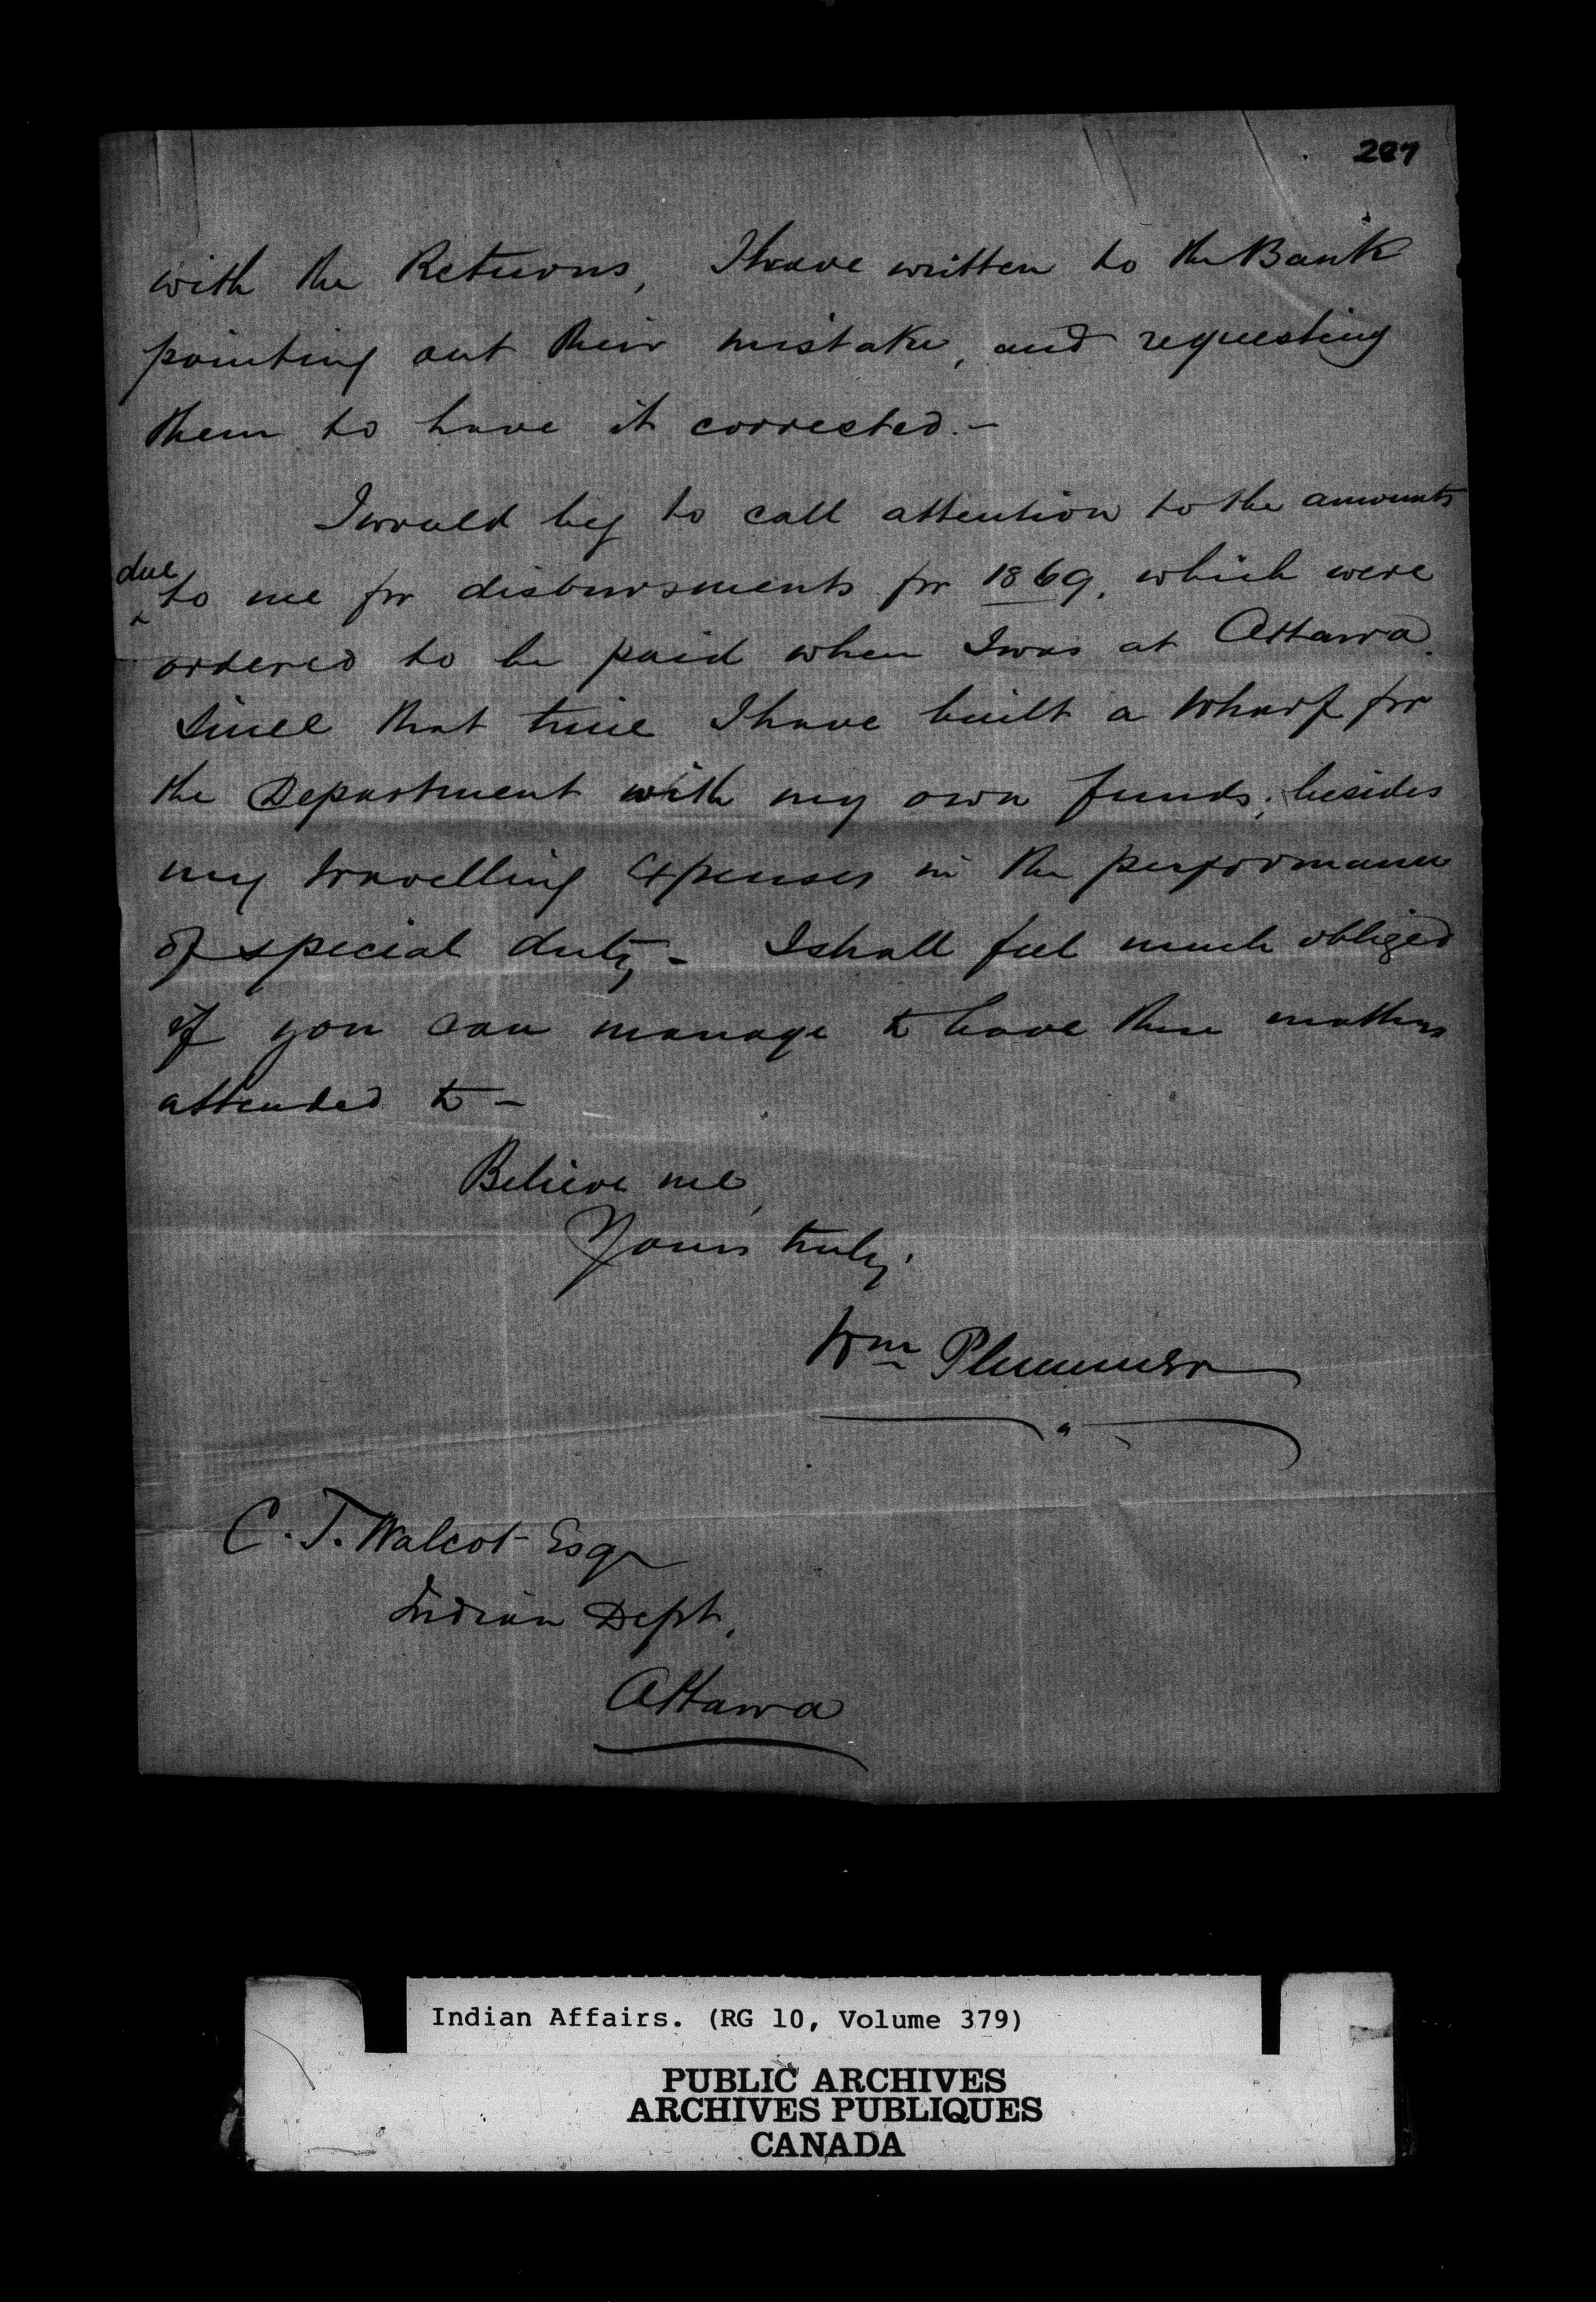 287
with the Returns, I have written to the Bank
pointing out their mistake, and requesting
them to have it corrected.-
I would beg to call attention to the amounts
due
^to me for disbursments for 1869, which were
ordered to be paid when I was at Ottawa.
Since that time I have built a Wharf for
the Department with my own funds; besides
my travelling expenses in the performance
of special duty - I shall feel much obliged
if you can manage to have these matters
attended to -
Believe me,
Yours truly.
Wm Plummer
C. T. Walcot Esqr
Indian Dept,
Ottawa
Indian Affairs. (RG 10, Volume 379)
PUBLIC ARCHIVES
ARCHIVES PUBLIQUES
CANADA